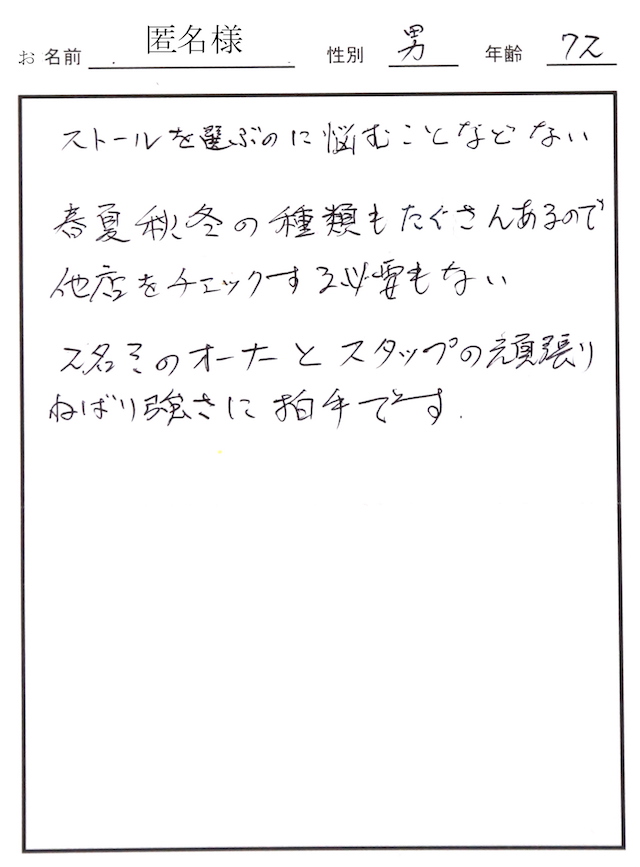 お名前 匿名様 性別 男 年齢 72
ストールを選ぶのに悩むことなどない
春夏秋冬の種類もたくさんあるので
他店をチェックする必要もない
のオーナーとスタップの頑張り
ねばり強さに拍手です.